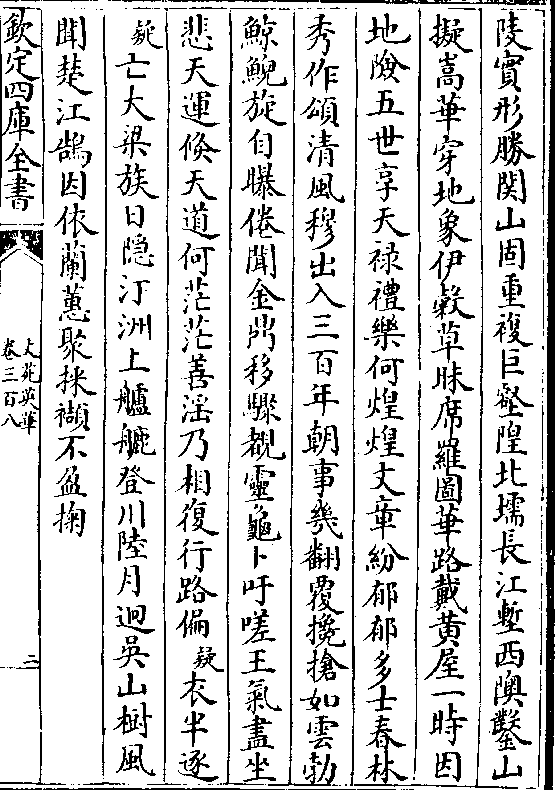 陵實形勝関山固重複巨壑隍北壖長江塹西隩鑿山
擬嵩華穿地象伊榖草昧席羅圖華路戴黄屋一時因
地險五世享天禄禮樂何煌煌文章紛郁郁多士春林
秀作頌清風穆出入三百年朝事幾翻覆攙搶如雲勃
鯨鯢旋自曝倦聞金鼎移驟觀靈龜卜吁嗟王氣盡坐
悲天運倐天道何茫茫善滛乃相復行路偏疑衣半逐
疑亡大梁族日隠汀洲上艫𦪇登川陸月迥呉山樹風
聞楚江鵠因依蘭蕙聚採襭不盈掬
欽定四庫全書
文苑英華
卷三百八
二